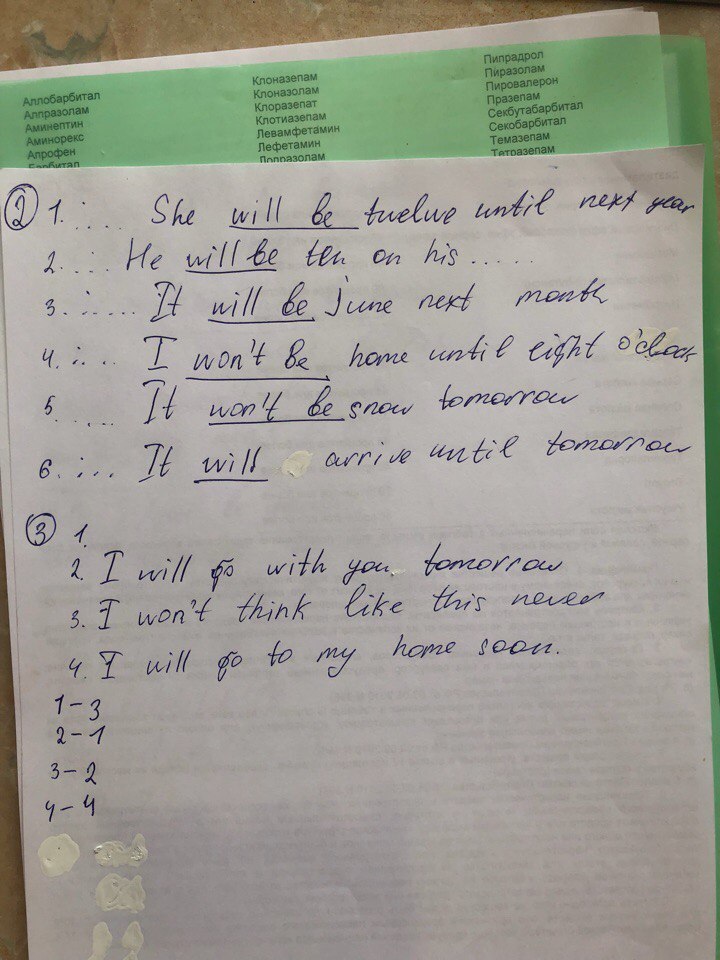 Аллобарбитал
Алпразолам
Аминептин
Аминорекс
Апрофен
Барбитал
Клоназепам
Клоназолам
Клоразепат
Клотиазепам
Левамфетамин
Лефетамин
Лопразолам
Пипрадрол
Пиразолам
Пировалерон
Празепам
Секбутабарбитал
Секобарбитал
Темазепам
Тетразепам
② 1. .... She will be twelve until next year
2. ... He will be ten on his ......
3. ...... It will be June next month
4. .... I won't be home until eight o'clock
5. ..... It won't be snow tomorrow
6. .... It will arrive until tomorrow
③ 1.
2. I will go with you tomorrow
3. I won't think like this never
4. I will go to my home soon.
1-3
2-1
3-2
4-4